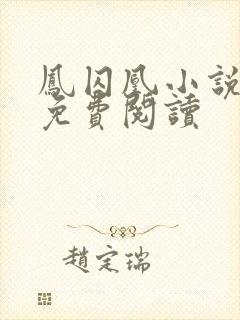 鳳囚凰小說
免費閱讀
趙定瑞